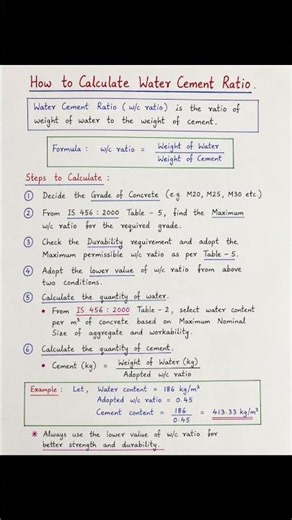 How to Calculate Water Cement Ratio.
Water Cement Ratio (w/c ratio) is the ratio of
weight of water to the weight of cement.
Formula : w/c ratio = Weight of Water
Weight of Cement
Steps to Calculate :
① Decide the Grade of Concrete (e.g. M20, M25, M30 etc.)
② From IS 456 : 2000 Table - 5, find the Maximum
w/c ratio for the required grade.
③ Check the Durability requirement and adopt the
Maximum permissible w/c ratio as per Table - 5.
④ Adopt the lower value of w/c ratio from above
two conditions.
⑤ Calculate the quantity of water.
• From IS 456 : 2000 Table - 2, select water content
per m³ of concrete based on Maximum Nominal
Size of aggregate and workability.
⑥ Calculate the quantity of cement.
• Cement (kg) = Weight of Water (kg)
Adopted w/c ratio
Example : Let, Water content = 186 kg/m³
Adopted w/c ratio = 0.45
Cement content = 186 = 413.33 kg/m³
0.45
* Always use the lower value of w/c ratio for
better strength and durability.